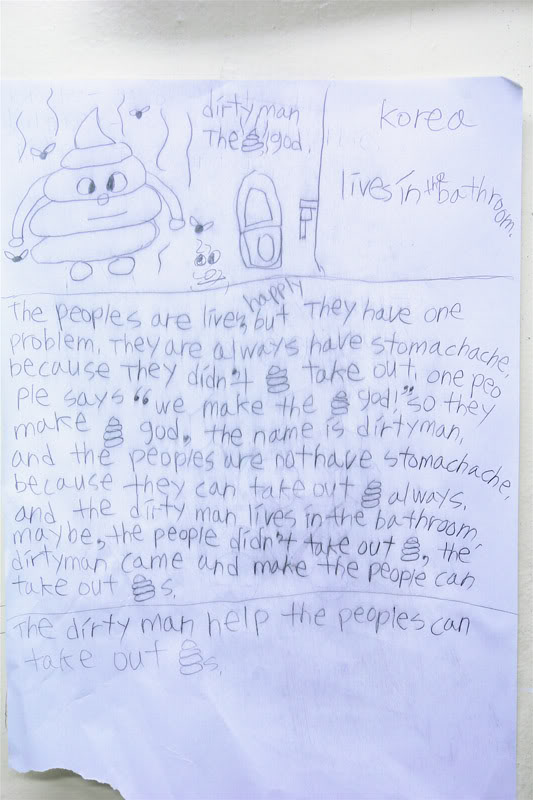 dirty man
The 💩 god.
korea
lives in the bathroom.
The peoples are lives happly, but They have one
problem. They are always have stomachache,
because they didn't 💩 take out, one peo
ple says "we make the 💩 god!" so they
make 💩 god, the name is dirtyman,
and the peoples are nothave stomachache,
because they can take out 💩 always.
and the dirty man lives in the bathroom
maybe, the people didn't take out 💩, the
dirtyman came and make the people can
take out 💩s.
The dirty man help the peoples can
take out 💩s.